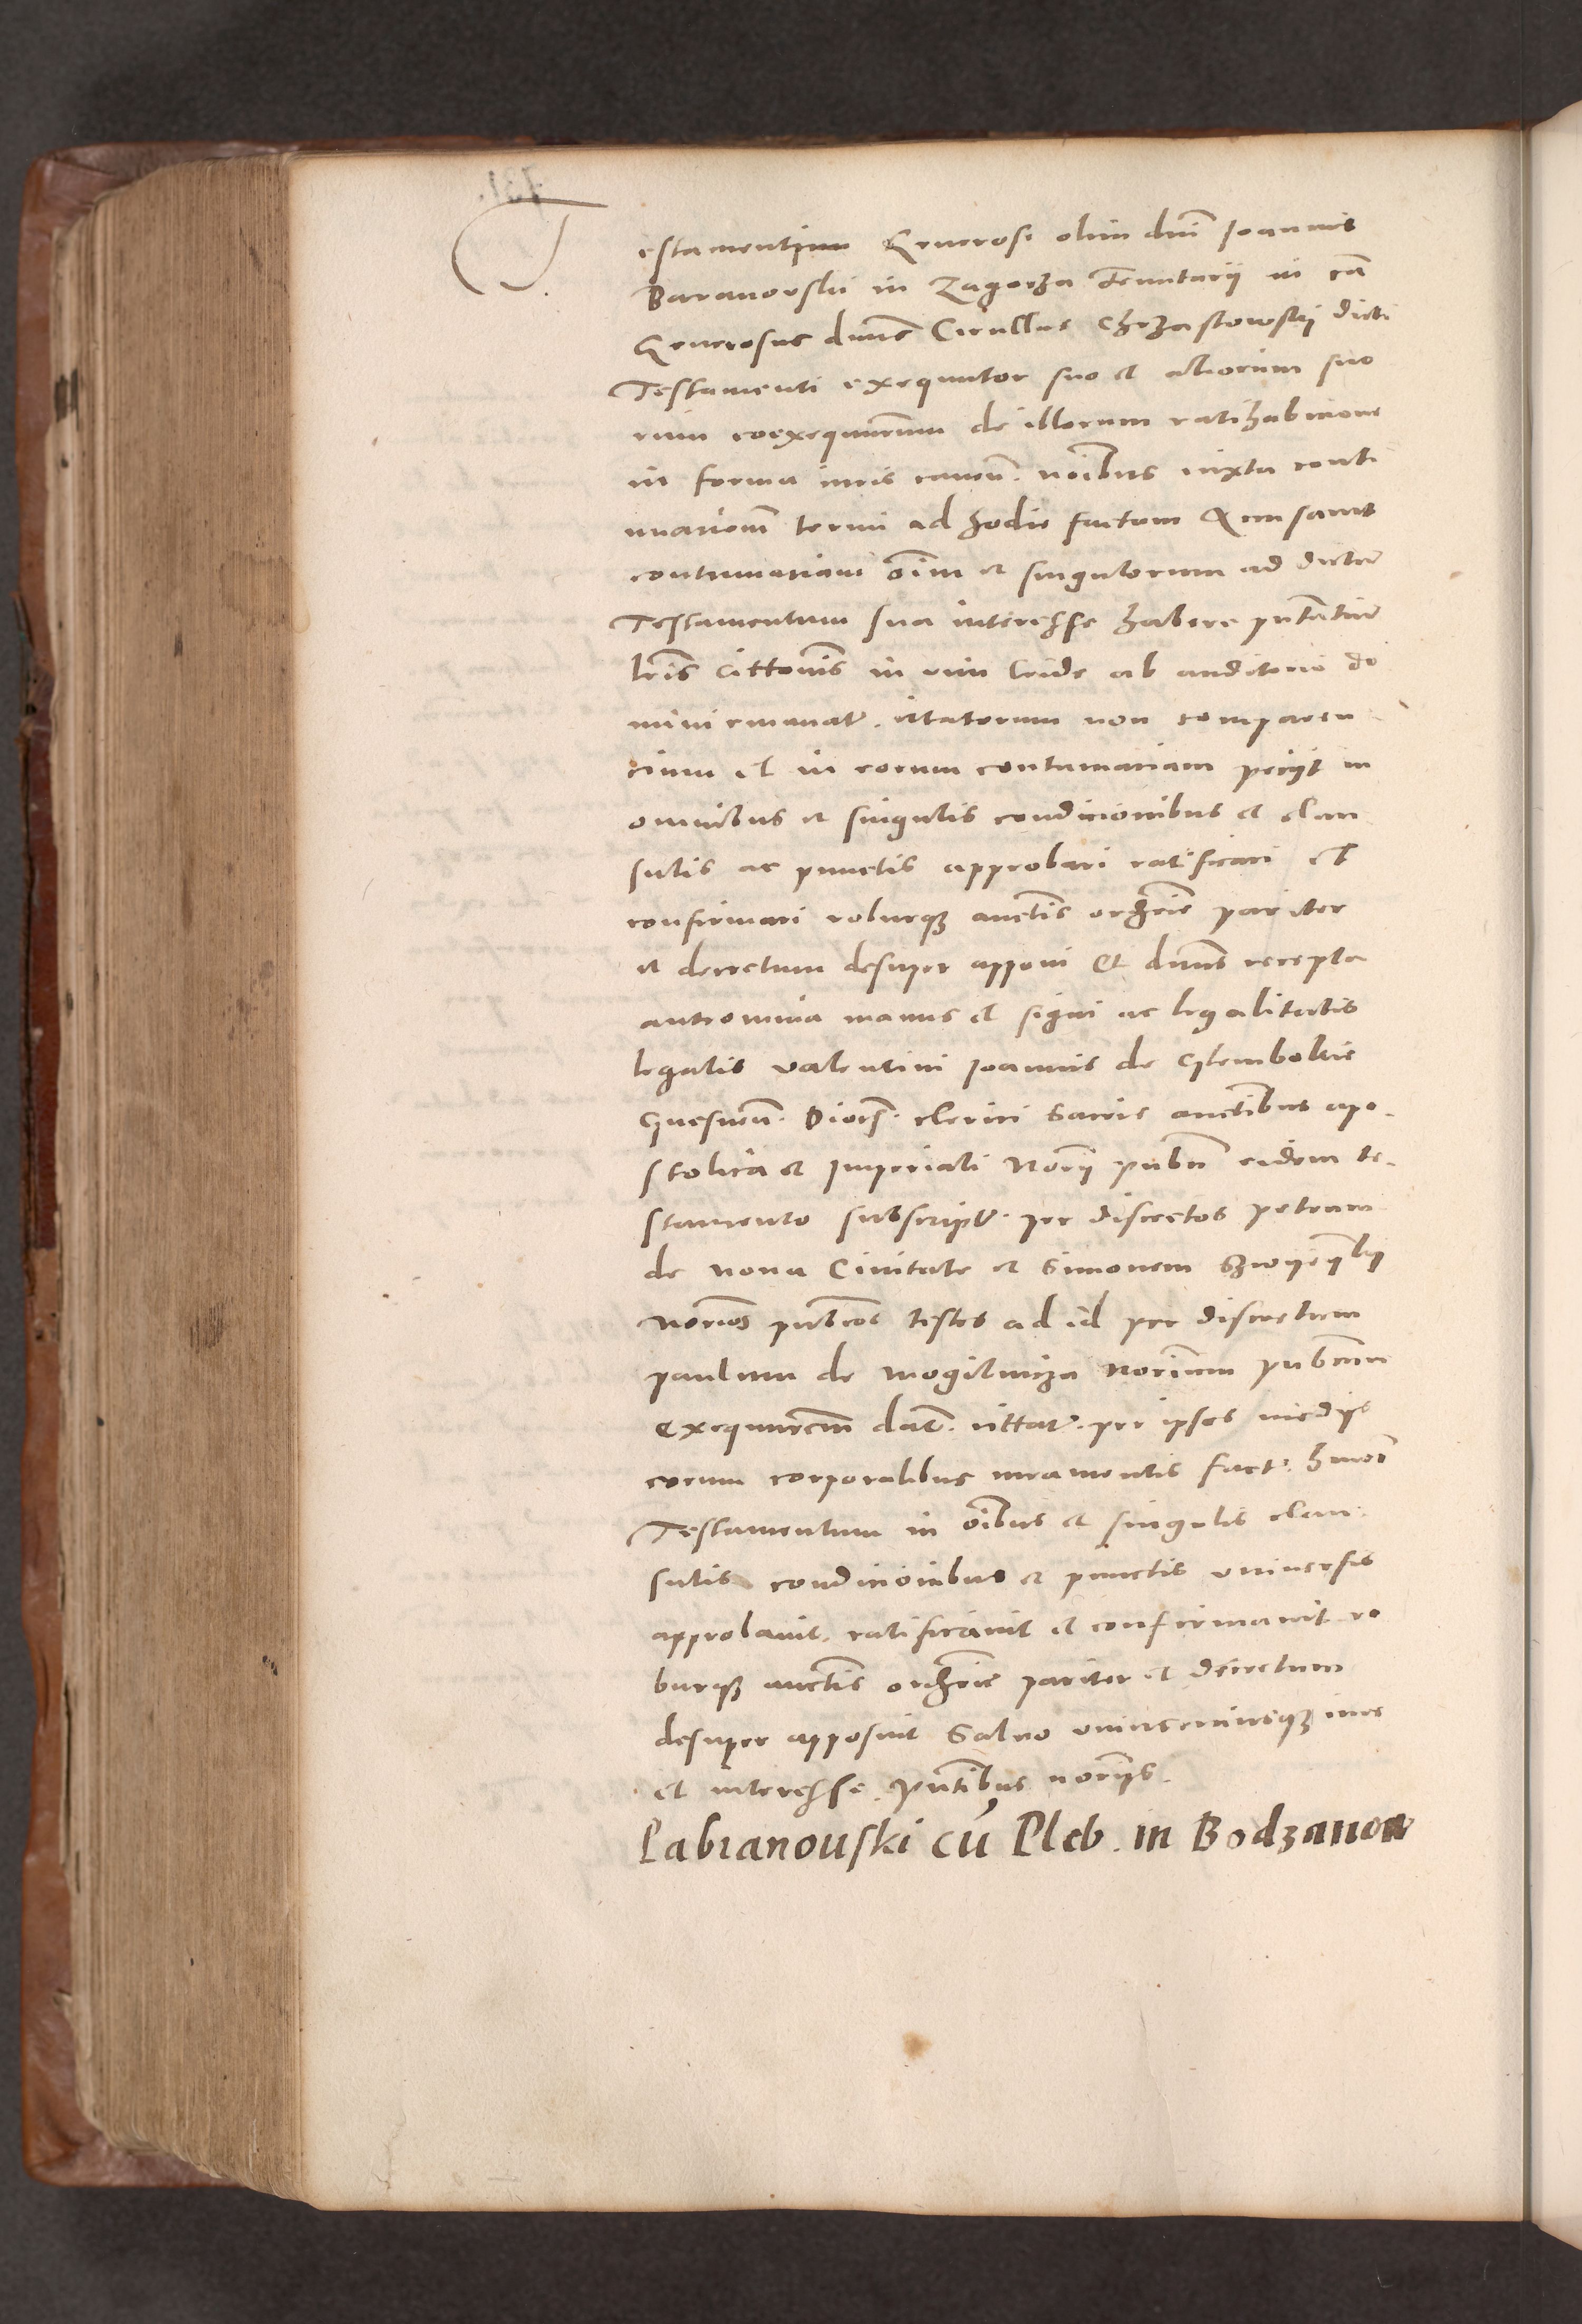 Testamentum Generosi olim dni Joannis
Baranowski in Zagorza Tenutarij in ca
Generosus dnus Cirullus Chrzastowskij dicti
Testamenti exequutor suo et aliorum suo
rum coexequutorum de illorum ratihabicione
in forma iuris caven. noibus iuxta conti
nuacionem termi ad hodie factam Accusavit
contumaciam oim et singulorum ad dictum
Testamentum sua interesse habere putatium
lris citationis in vim Cride ab auditorio do
mini emanat. citatorum non comparen
cium et in eorum contumaciam peciit in
omnibus et singulis condicionibus et clau
sulis ac punctis approbari ratificari et
confirmari roburque auctis ordrie pariter
et decretum desuper apponi Et dnus recepta
anteomnia manus et signi ac legalitatis
legalis Valentini Joannis de Glembokie
Gnesnen. Dioc. clerici Sacris auctibus apo
stolica et Imperiali Norij publi eidem te
stamento subscript. per discretos petrum
de nova Civitate et Simonem
Norios publicos testes ad id per discretum
paulum de Mogilnicza Norium publicum
exequutorem dat. cittat. per ipsos mediis
eorum corporalibus iuramentis fact. hmoi
Testamentum in oibus et singulis clau
sulis condicionibus et punctis universis
approbavit ratificavit et confirmavit ro
burque auctis ordrie pariter et decretum
desuper apposuit Salvo uniuscuiusque iure
et interesse. pntibus noriis.
Pabianouski cu Pleb. in Bodzanow